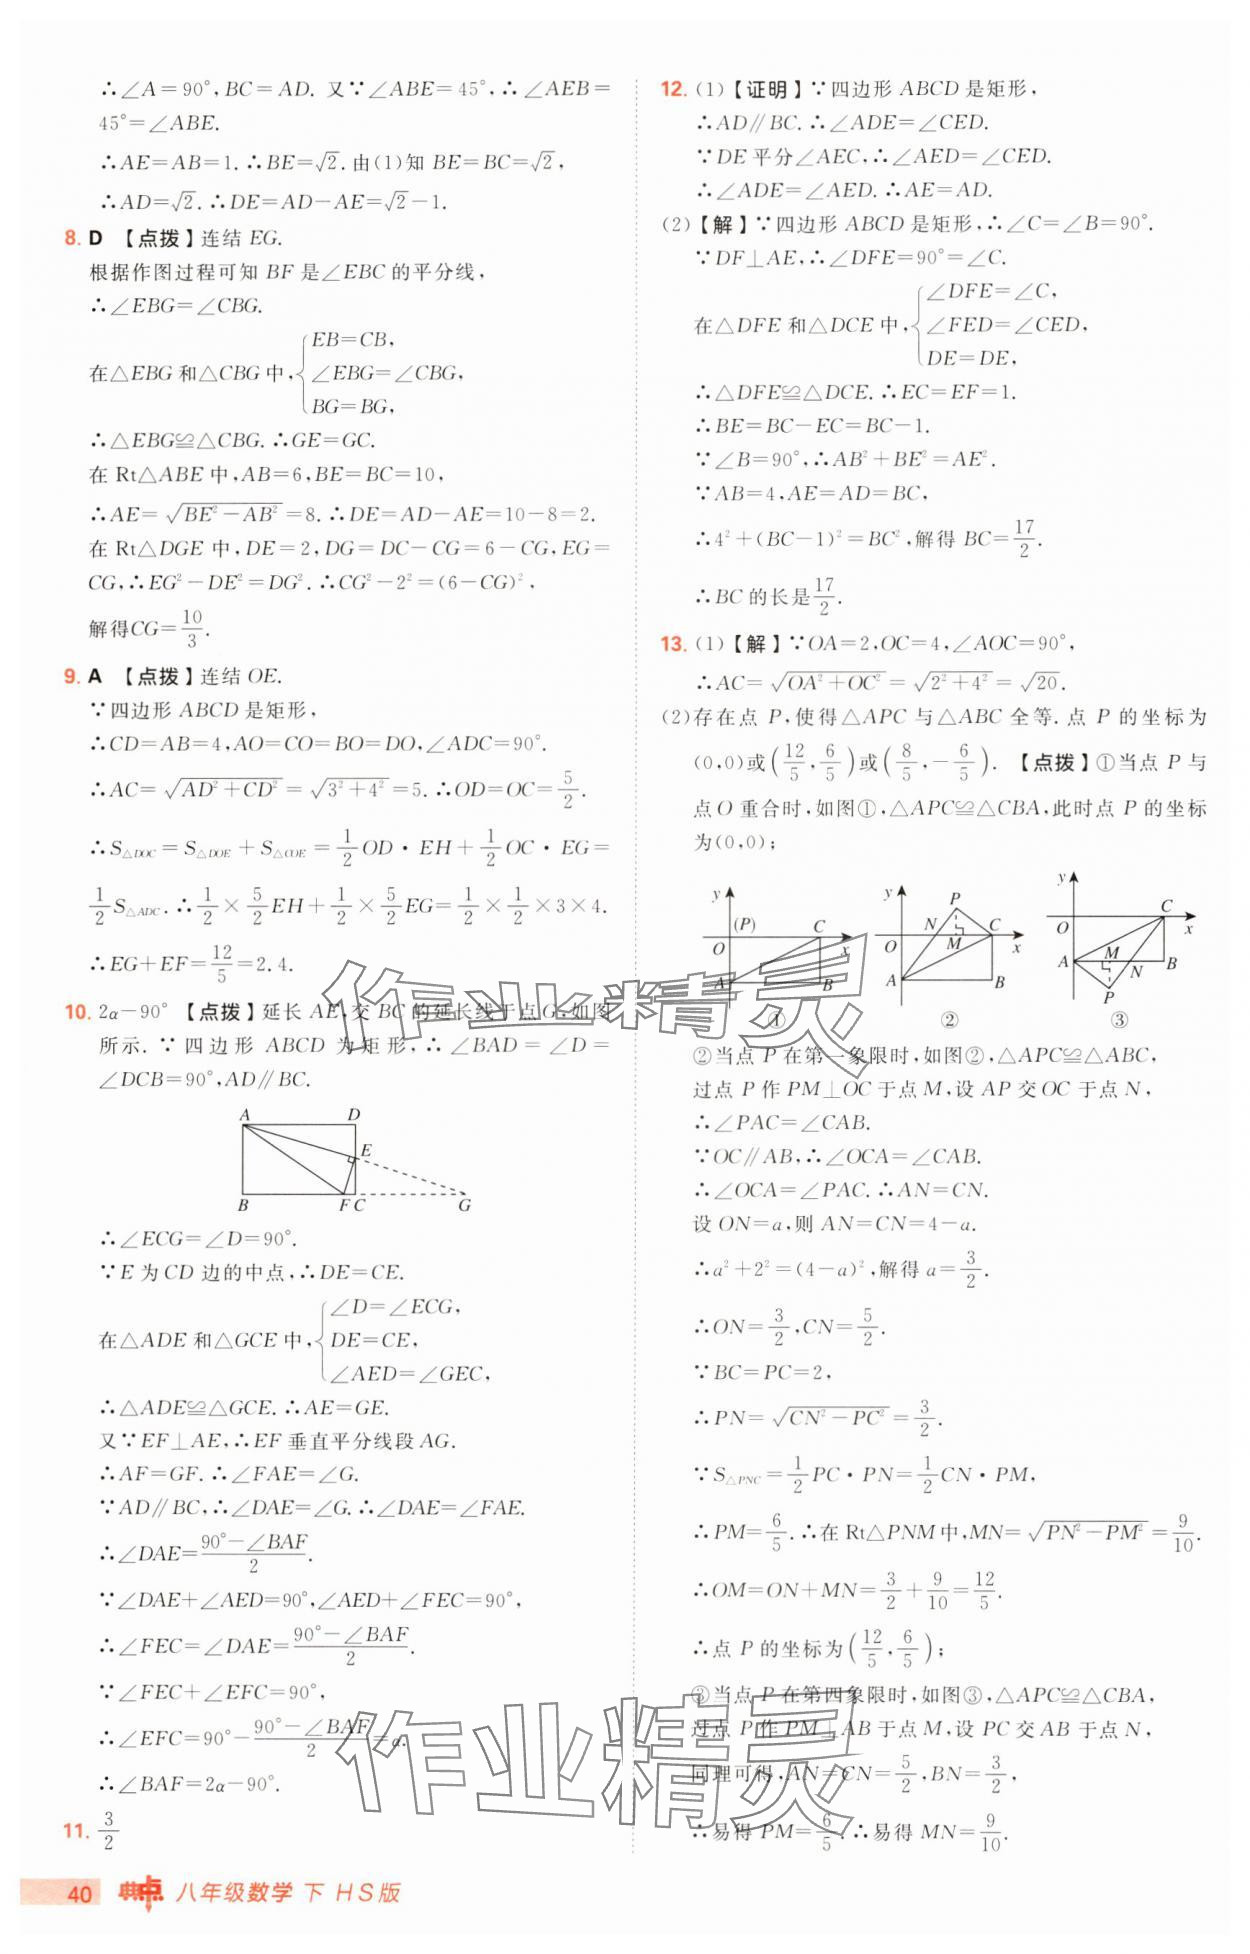 ∴∠A=90°,BC=AD. 又∵∠ABE=45°,∴∠AEB=
45°=∠ABE.
∴AE=AB=1.∴BE=√2.由(1)知 BE=BC=√2,
∴AD=√2.∴DE=AD-AE=√2-1.
8. D 【点拨】连结 EG.
根据作图过程可知 BF 是∠EBC 的平分线,
∴∠EBG=∠CBG.
在△EBG 和△CBG 中,{EB=CB,
∠EBG=∠CBG,
BG=BG,
∴△EBG≌△CBG.∴GE=GC.
在 Rt△ABE 中,AB=6,BE=BC=10,
∴AE=√(BE²-AB²)=8.∴DE=AD-AE=10-8=2.
在 Rt△DGE 中,DE=2,DG=DC-CG=6-CG,EG=
CG,∴EG²-DE²=DG².∴CG²-2²=(6-CG)²,
解得CG=10/3.
9. A 【点拨】连结 OE.
∵四边形 ABCD 是矩形,
∴CD=AB=4,AO=CO=BO=DO,∠ADC=90°.
∴AC=√(AD²+CD²)=√(3²+4²)=5.∴OD=OC=5/2.
∴S△DOC=S△DOE+S△COE=1/2 OD·EH+1/2 OC·EG=
1/2 S△ADC.∴1/2×5/2 EH+1/2×5/2 EG=1/2×1/2×3×4.
∴EG+EF=12/5=2.4.
10. 2α-90° 【点拨】延长 AE,交 BC 的延长线于点 G,如图
所示. ∵四边形 ABCD 为矩形,∴∠BAD=∠D=
∠DCB=90°,AD∥BC.
A D
E
B F C G
∴∠ECG=∠D=90°.
∵E 为 CD 边的中点,∴DE=CE.
在△ADE 和△GCE 中,{∠D=∠ECG,
DE=CE,
∠AED=∠GEC,
∴△ADE≌△GCE.∴AE=GE.
又∵EF⊥AE,∴EF 垂直平分线段 AG.
∴AF=GF.∴∠FAE=∠G.
∵AD∥BC,∴∠DAE=∠G.∴∠DAE=∠FAE.
∴∠DAE=(90°-∠BAF)/2.
∵∠DAE+∠AED=90°,∠AED+∠FEC=90°,
∴∠FEC=∠DAE=(90°-∠BAF)/2.
∵∠FEC+∠EFC=90°,
∴∠EFC=90°-(90°-∠BAF)/2=α.
∴∠BAF=2α-90°.
11. 3/2
40 典中点 八年级数学 下 HS版
12. (1)【证明】∵四边形 ABCD 是矩形,
∴AD∥BC.∴∠ADE=∠CED.
∵DE 平分∠AEC,∴∠AED=∠CED.
∴∠ADE=∠AED.∴AE=AD.
(2)【解】∵四边形 ABCD 是矩形,∴∠C=∠B=90°.
∵DF⊥AE,∴∠DFE=90°=∠C.
在△DFE 和△DCE 中,{∠DFE=∠C,
∠FED=∠CED,
DE=DE,
∴△DFE≌△DCE.∴EC=EF=1.
∴BE=BC-EC=BC-1.
∵∠B=90°,∴AB²+BE²=AE².
∵AB=4,AE=AD=BC,
∴4²+(BC-1)²=BC²,解得 BC=17/2.
∴BC 的长是17/2.
13. (1)【解】∵OA=2,OC=4,∠AOC=90°,
∴AC=√(OA²+OC²)=√(2²+4²)=√20.
(2)存在点 P,使得△APC 与△ABC 全等. 点 P 的坐标为
(0,0)或(12/5,6/5)或(8/5,-6/5). 【点拨】①当点 P 与
点 O 重合时,如图①,△APC≌△CBA,此时点 P 的坐标
为(0,0);
y (P) C O x A B ①
y P N C O M x A B ②
y C O x A M N B P ③
②当点 P 在第一象限时,如图②,△APC≌△ABC,
过点 P 作 PM⊥OC 于点 M,设 AP 交 OC 于点 N,
∴∠PAC=∠CAB.
∵OC∥AB,∴∠OCA=∠CAB.
∴∠OCA=∠PAC.∴AN=CN.
设 ON=a,则 AN=CN=4-a.
∴a²+2²=(4-a)²,解得 a=3/2.
∴ON=3/2,CN=5/2.
∵BC=PC=2,
∴PN=√(CN²-PC²)=3/2.
∵S△PNC=1/2 PC·PN=1/2 CN·PM,
∴PM=6/5.∴在 Rt△PNM 中,MN=√(PN²-PM²)=9/10.
∴OM=ON+MN=3/2+9/10=12/5.
∴点 P 的坐标为(12/5,6/5);
③当点 P 在第四象限时,如图③,△APC≌△CBA,
过点 P 作 PM⊥AB 于点 M,设 PC 交 AB 于点 N,
同理可得,AN=CN=5/2,BN=3/2,
∴易得 PM=6/5.∴易得 MN=9/10.
作业精灵
作业精灵